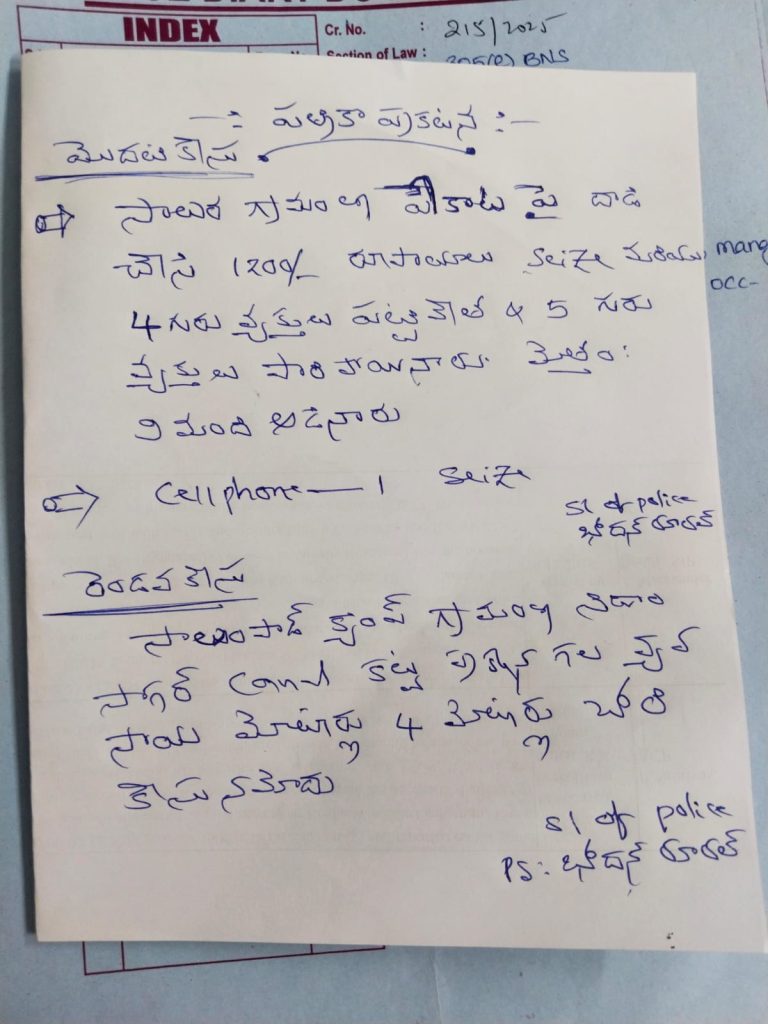 INDEX
Cr. No. : 215/2025
Section of Law : 305(e) BNS
-: పత్రికా ప్రకటన :-
మొదటి కేసు
సాలుర గ్రామంలో పేకాట పై దాడి
చేసి 1200/- రూపాయలు seize మరియు
4 గురు వ్యక్తులు పట్టివేత & 5 గురు
వ్యక్తులు పారిపోయినారు. మొత్తం:
9 మంది ఆడినారు
cellphone — 1 seize
SI of police
బోధన్ రూరల్
రెండవ కేసు
సాలంపాడ్ క్యాంప్ గ్రామంలో నిజాం
సాగర్ canal కట్ట ప్రక్కన గల వ్యవ
సాయ మోటార్లు 4 మోటార్లు చోరి
కేసు నమోదు
SI of police
PS: బోధన్ రూరల్
mang
occ-